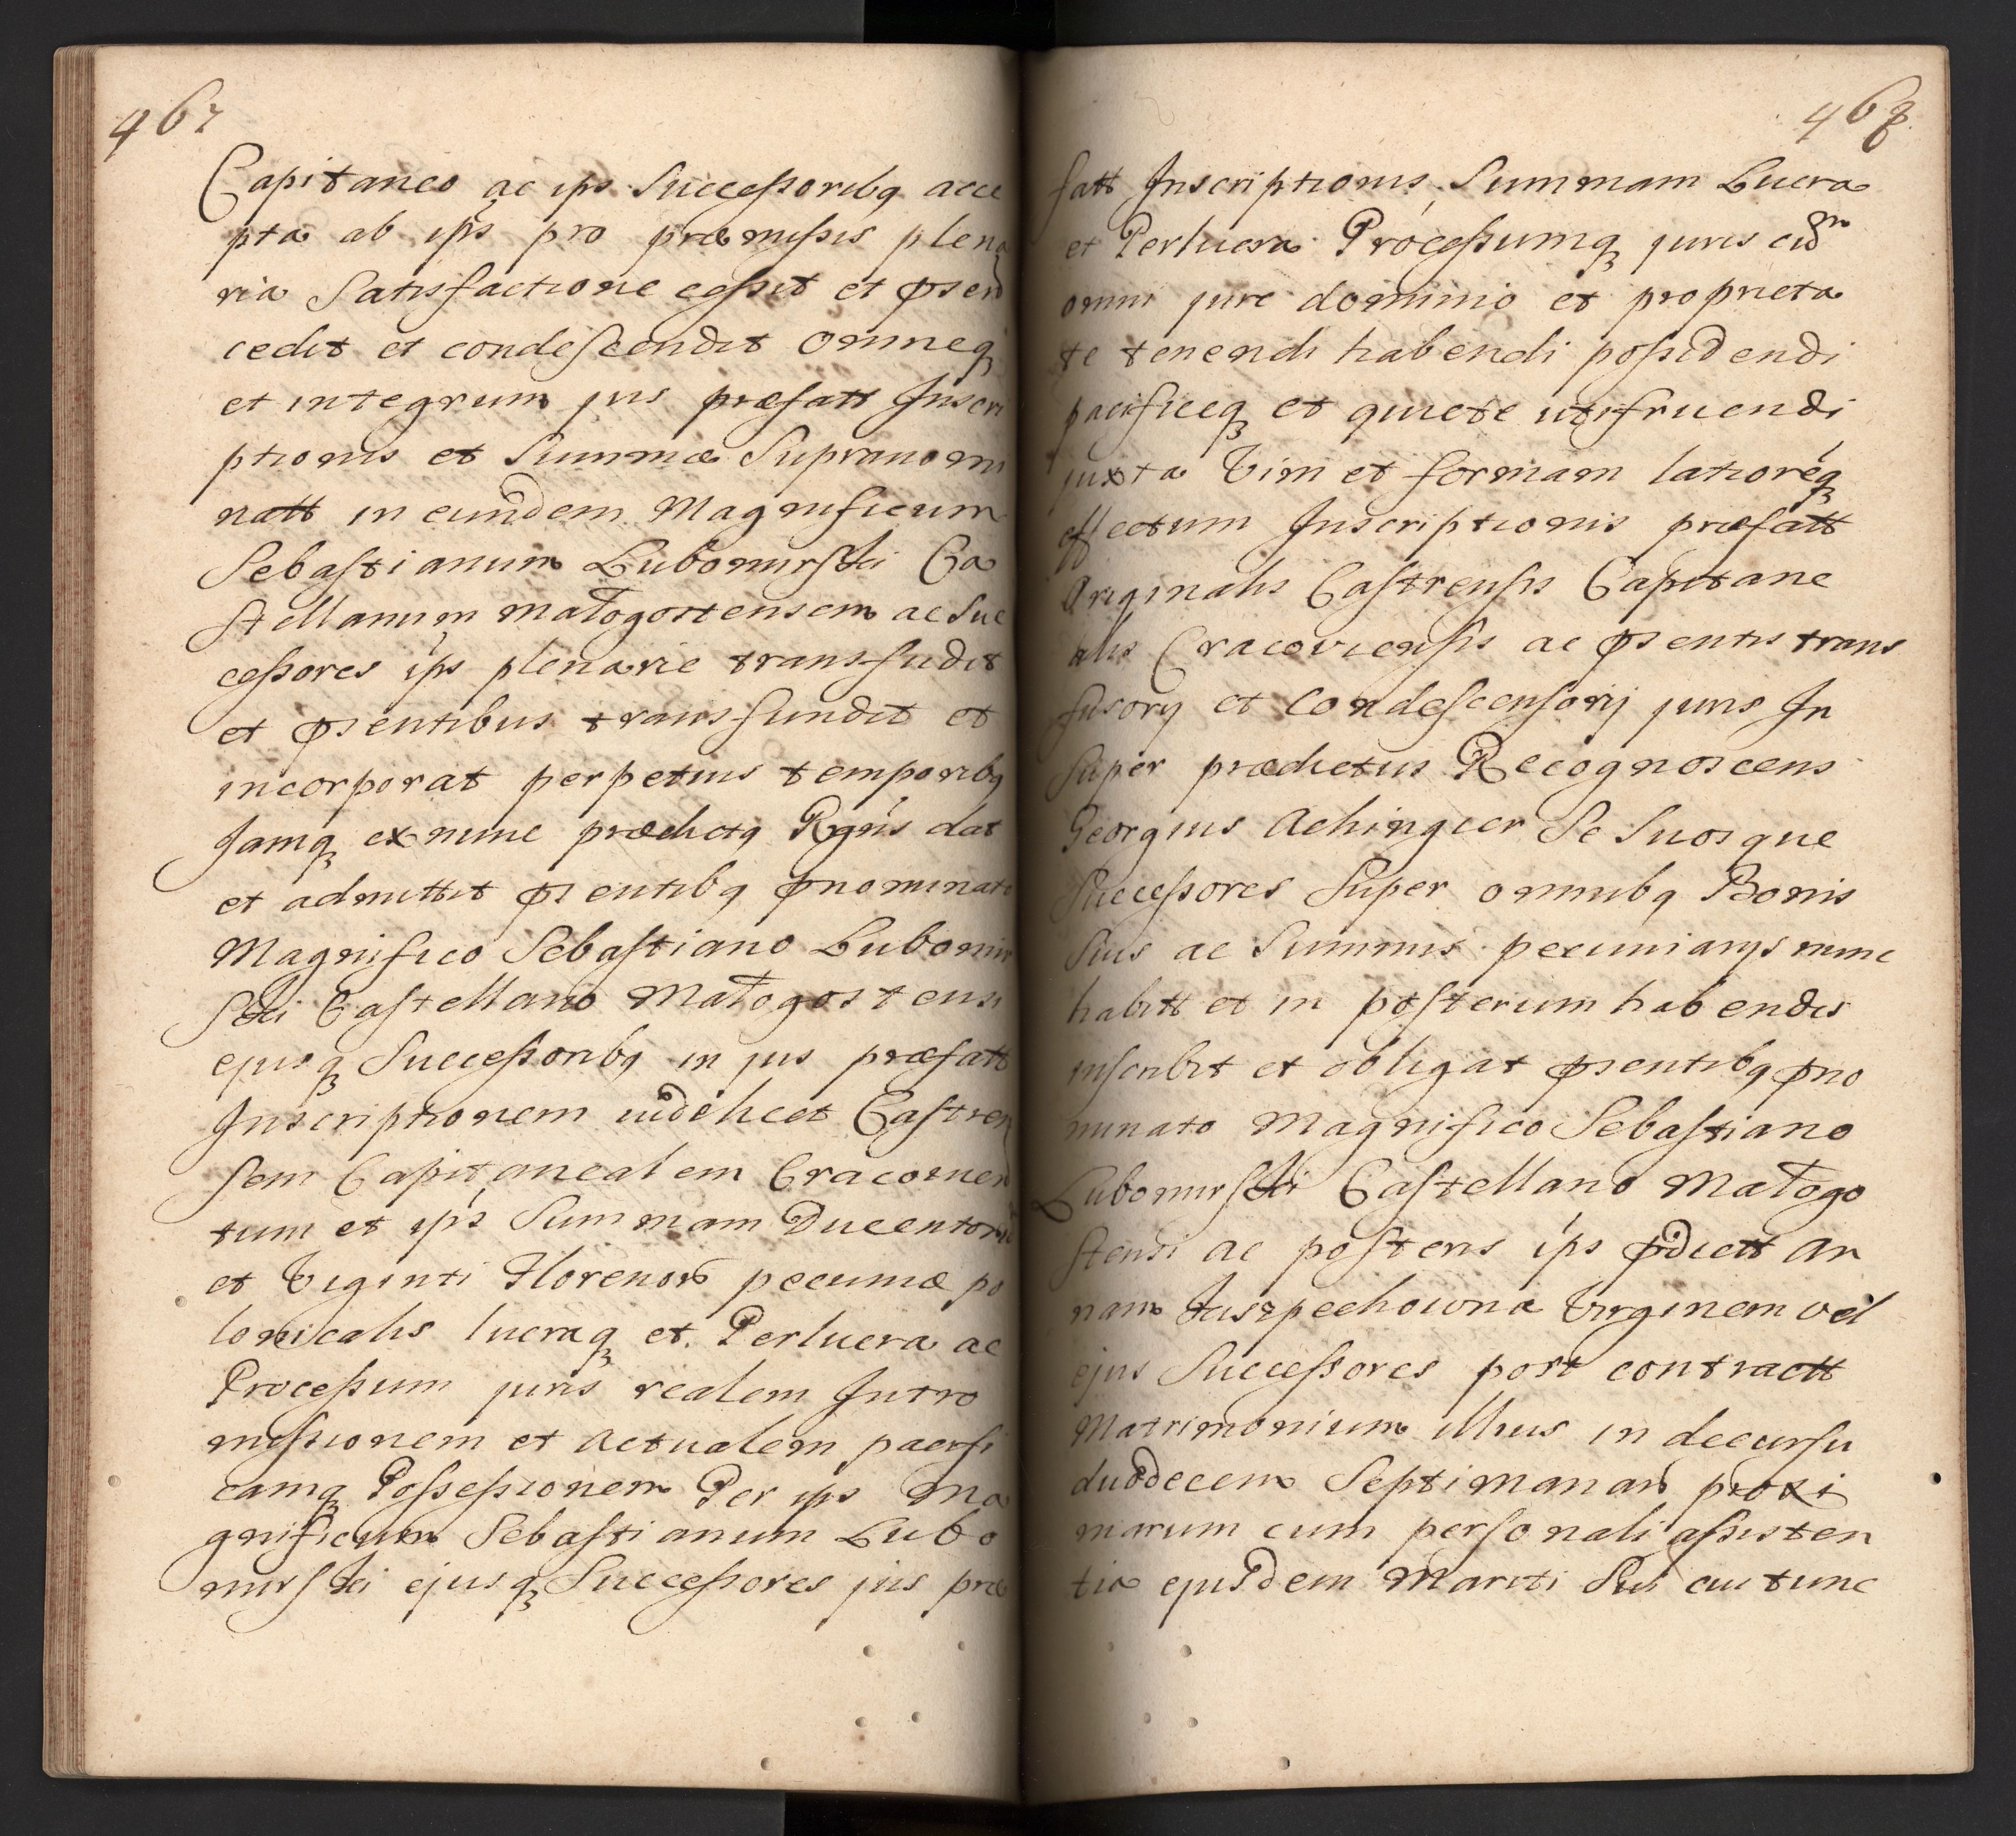 467
Capitaneo ac ips Successoribq acce
pta ab ips pro præmissis plena
ria Satisfactione cessit et psen
cedit et condescendit omneq
et integrum jus præfatt Inscri
ptionis et Summæ Supranomi
natt in eundem Magnificum
Sebastianum Lubomirski Ca
stellanum małogostensem ac Suc
cessores ips plenarie transfudit
et psentibus transfundit et
incorporat perpetuis temporibq
Jamq ex nunc prædictq Rgns dat
et admittit psentibq pnominato
Magnifico Sebastiano Lubomir
ski Castellano Małogostensi
ejusq Successoribq in jus præfatt
Inscriptionem videlicet Castren
sem Capitanealem Cracovien
tum et ips Summam Ducentorū
et Viginti Florenors pecuniæ po
lonicalis lucraq et Perlucra ac
Processum juris realem Intro
missionem et Actualem pacifi
camq Possessionem Per ips Ma
gnificum Sebastianum Lubo
mirski ejusq Successores jus præ
468
fatt Inscriptionis, Summam Lucra
et Perlucra Processumq juris cūm
omni jure dominio et proprieta
te tenendi habendi possidendi
pacificeq et quiete utifruendi
juxta Vim et formam latioreq
effectum Inscriptionis præfatt
Originalis Castrensis Capitane
alis Cracoviensis ac psentis trans
fusorij et Condescensorij juris In
super prædictus Recognoscens
Georgius Achingier Se Suosque
Successores Super omnibq Bonis
Suis ac Summis pecuniarijs nunc
habitt et in posterum habendis
inscribit et obligat psentibq pno
minato Magnifico Sebastiano
Lubomirski Castellano Małogo
stensi ac posteris ips pdictt An
nam Juszpechowna Virginem vel
ejus Successores post contractt
Matrimonium illius in decursu
duodecem Septimanars proxi
marum cum personali assisten
tia ejusdem Mariti Sui cui tunc